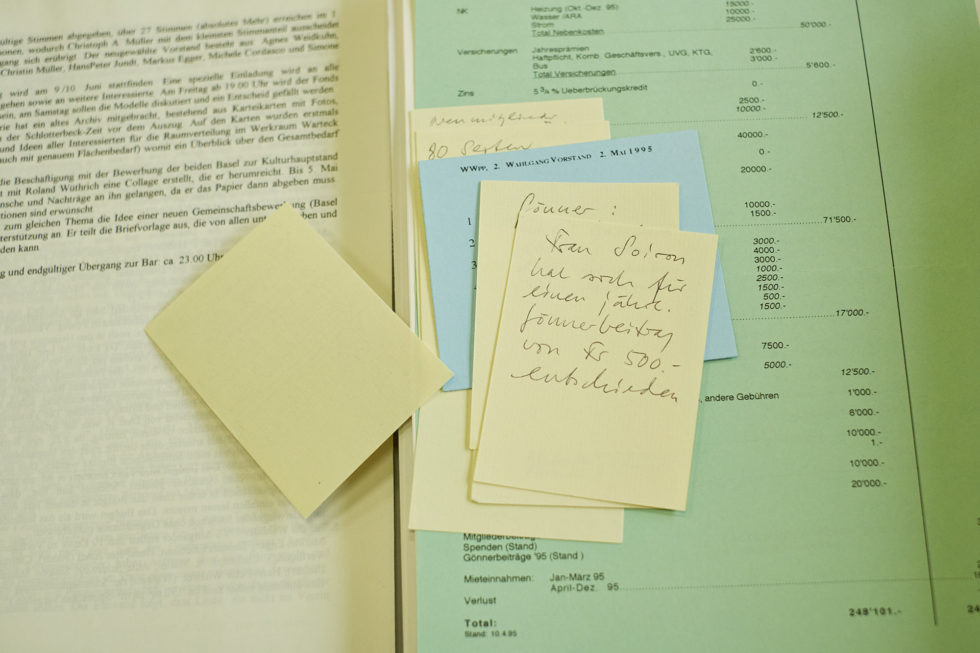 ültige Stimmen abgegeben, über 27 Stimmen (absolutes Mehr) erreichen im 1.
onen, wodurch Christoph A. Müller mit dem kleinsten Stimmanteil ausscheidet
gang sich erübrigt. Der neugewählte Vorstand besteht aus: Agnes Weidkuhn,
Christin Müller, HansPeter Jundt, Markus Egger, Michele Cordasco und Simone
wird am 9./10. Juni stattfinden. Eine spezielle Einladung wird an alle
gehen sowie an weitere Interessierte. Am Freitag ab 19.00 Uhr wird der Fonds
sein, am Samstag sollen die Modelle diskutiert und ein Entscheid gefällt werden.
rie hat ein altes Archiv mitgebracht, bestehend aus Karteikarten mit Fotos,
der Schlotterbeck-Zeit vor dem Auszug. Auf den Karten wurden erstmals
und Ideen aller Interessierten für die Raumverteilung im Werkraum Warteck
auch mit genauem Flächenbedarf) womit ein Überblick über den Gesamtbedarf
die Beschäftigung mit der Bewerbung der beiden Basel zur Kulturhauptstand
t mit Roland Wüthrich eine Collage erstellt, die er herumreicht. Bis 5. Mai
nsche und Nachträge an ihn gelangen, da er das Papier dann abgeben muss.
tionen sind erwünscht.
zum gleichen Thema die Idee einer neuen Gemeinschaftsbewerbung (Basel
terstützung an. Er teilt die Briefvorlage aus, die von allen und
den kann.
g und endgültiger Übergang zur Bar: ca. 23.00 Uhr
Neumitglieder
80 Seiten
WWpp, 2. Wahlgang Vorstand 2. Mai 1995
1
2
3
Gönner :
Frau Soiron
hat sich für
einen jährl.
Gönnerbeitrag
von Fr 500.-
entschieden
NK Heizung (Okt.-Dez. 95) 15000.-
Wasser /ARA 10000.-
Strom 25000.-
Total Nebenkosten 50'000.-
Versicherungen Jahresprämien 2'600.-
Haftpflicht, Komb. Geschäftsvers., UVG, KTG, 3'000.-
Bus
Total Versicherungen 5'600.-
Zins 5 ³/₄ % Ueberbrückungskredit 0.-
2500.-
10000.-
12'500.-
40000.-
0.-
20000.-
10000.-
1500.-
71'500.-
3000.-
4000.-
3000.-
1000.-
2500.-
1500.-
500.-
1500.-
17'000.-
7500.-
5000.-
12'500.-
, andere Gebühren 1'000.-
6'000.-
10'000.-
1.-
10'000.-
20'000.-
Mitgliederbeitrag
Spenden (Stand)
Gönnerbeiträge '95 (Stand )
Mieteinnahmen: Jan-März 95
April-Dez. 95
Verlust
Total: 248'101.-
Stand: 10.4.95